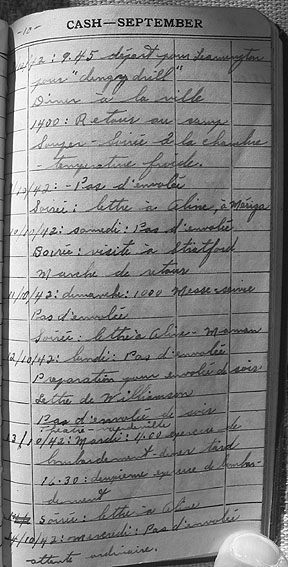 -10-
CASH—SEPTEMBER
10/42: 9.45 départ pour Leamington
pour "dinghy drill"
Diner à la ville
1400: Retour au camp
Souper - Soirée à la chambre
- température froide.
/10/42: - Pas d'envolée
Soirée: lettre à Aline, à
10/10/42: samedi: Pas d'envolée
Soirée: visite à Stratford
Marche de retour
11/10/42: dimanche: 1000 Messe
Pas d'envolée
Soirée: lettre à Aline - Maman
12/10/42: lundi: Pas d'envolée
Preparation pour envolée de soir
Lettre de Williamson
Pas d'envolée de soir
13/10/42: Mardi: exercise de
bombardement - diner tard
16:30: deuxieme exercise de bombar-
dement
Soirée: lettre à Aline
14/10/42: mercredi: Pas d'envolée
- attente ordinaire.